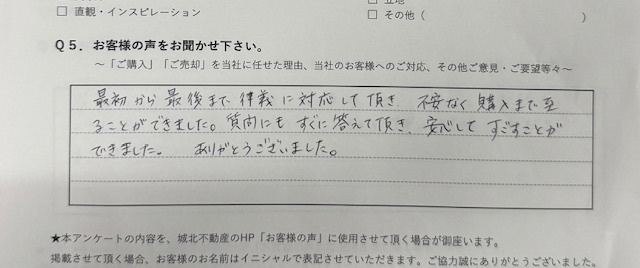 □ 直観・インスピレーション
□ その他（　　　）
Q5．お客様の声をお聞かせ下さい。
～「ご購入」「ご売却」を当社に任せた理由、当社のお客様へのご対応、その他ご意見・ご要望等々～
最初から最後まで律義に対応して頂き、不安なく購入まで至
ることができました。質問にもすぐに答えて頂き、安心してすごすことが
できました。　ありがとうございました。
★本アンケートの内容を、城北不動産のHP「お客様の声」に使用させて頂く場合が御座います。
掲載させて頂く場合、お客様のお名前はイニシャルで表記させていただきます。ご協力誠にありがとうございました。